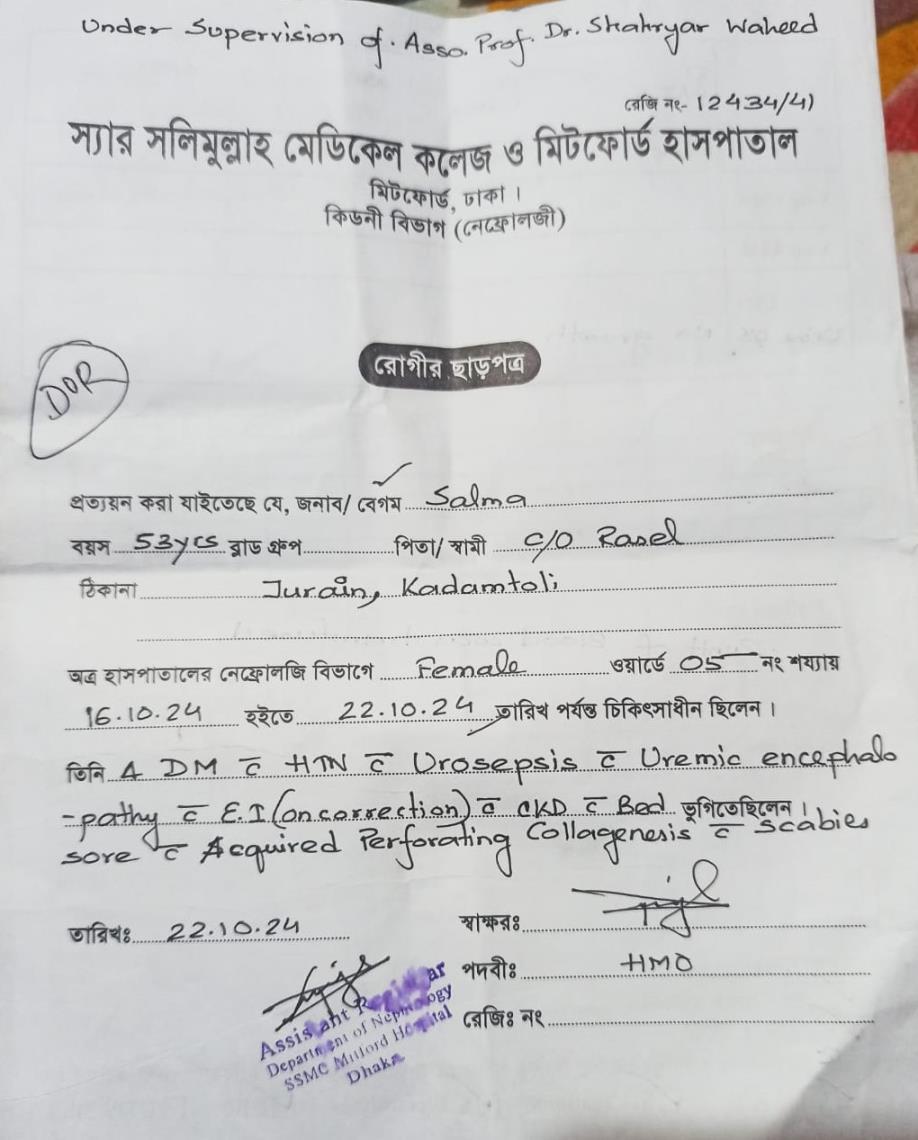 Under Supervision of. Asso. Prof. Dr. Shahryar Waheed
রেজি নং- 12434/41
স্যার সলিমুল্লাহ মেডিকেল কলেজ ও মিটফোর্ড হাসপাতাল
মিটফোর্ড, ঢাকা।
কিডনী বিভাগ (নেফ্রোলজী)
DOR
রোগীর ছাড়পত্র
প্রত্যয়ন করা যাইতেছে যে, জনাব/ বেগম Salma
বয়স 53yrs ব্লাড গ্রুপ পিতা/ স্বামী C/O Rasel
ঠিকানা Jurain, Kadamtoli
অত্র হাসপাতালের নেফ্রোলজি বিভাগে Female ওয়ার্ডে 05 নং শয্যায়
16.10.24 হইতে 22.10.24 তারিখ পর্যন্ত চিকিৎসাধীন ছিলেন।
তিনি A DM c̅ HTN c̅ Urosepsis c̅ Uremic encephalo
-pathy c̅ E.I (on correction) c̅ CKD c̅ Bed ভূগিতেছিলেন।
sore c̅ Acquired Perforating Collagenesis c̅ Scabies
তারিখঃ 22.10.24 স্বাক্ষরঃ
পদবীঃ HMO
রেজিঃ নং
Assistant Registrar
Department of Nephrology
SSMC Mitford Hospital
Dhaka